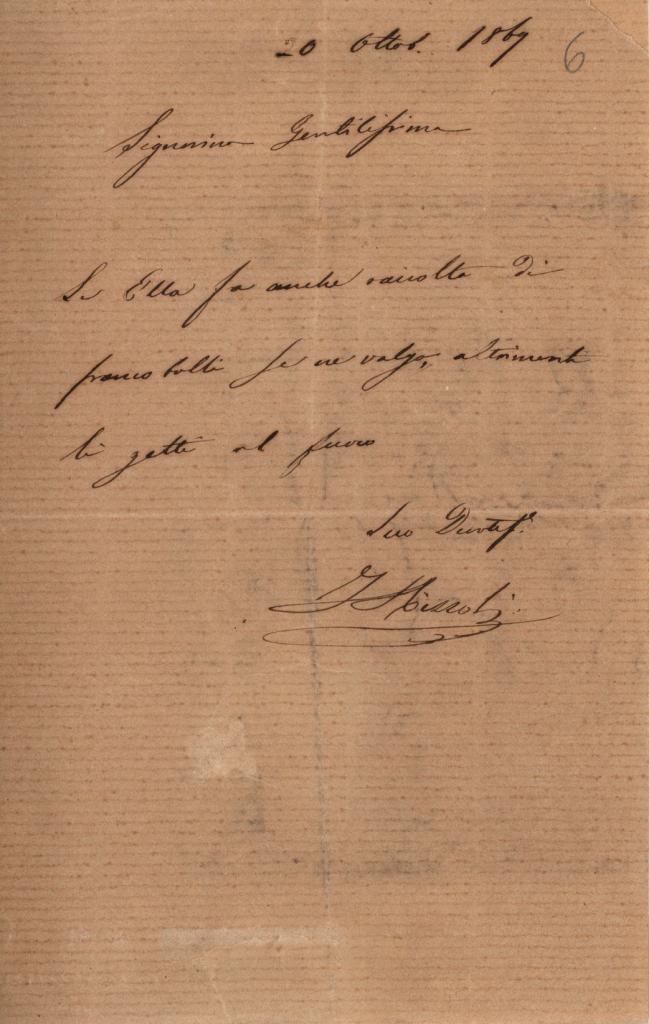 20 Ottob. 1867
6
Signorina Gentilissima
Se Ella fa anche raccolta di
francobolli se ne valga, altrimenti
li getti al fuoco
Suo Devotss.º